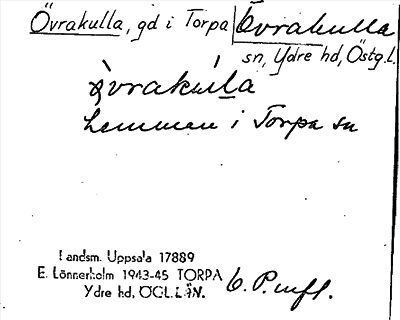 Övrakulla, gd i Torpa
Övrakulla
sn, Ydre hd, Östg.l.
hemman i Torpa sn
Landsm. Uppsala 17889
E. Lönnerholm 1943-45 TORPA
Ydre hd, ÖGL.LÄN.